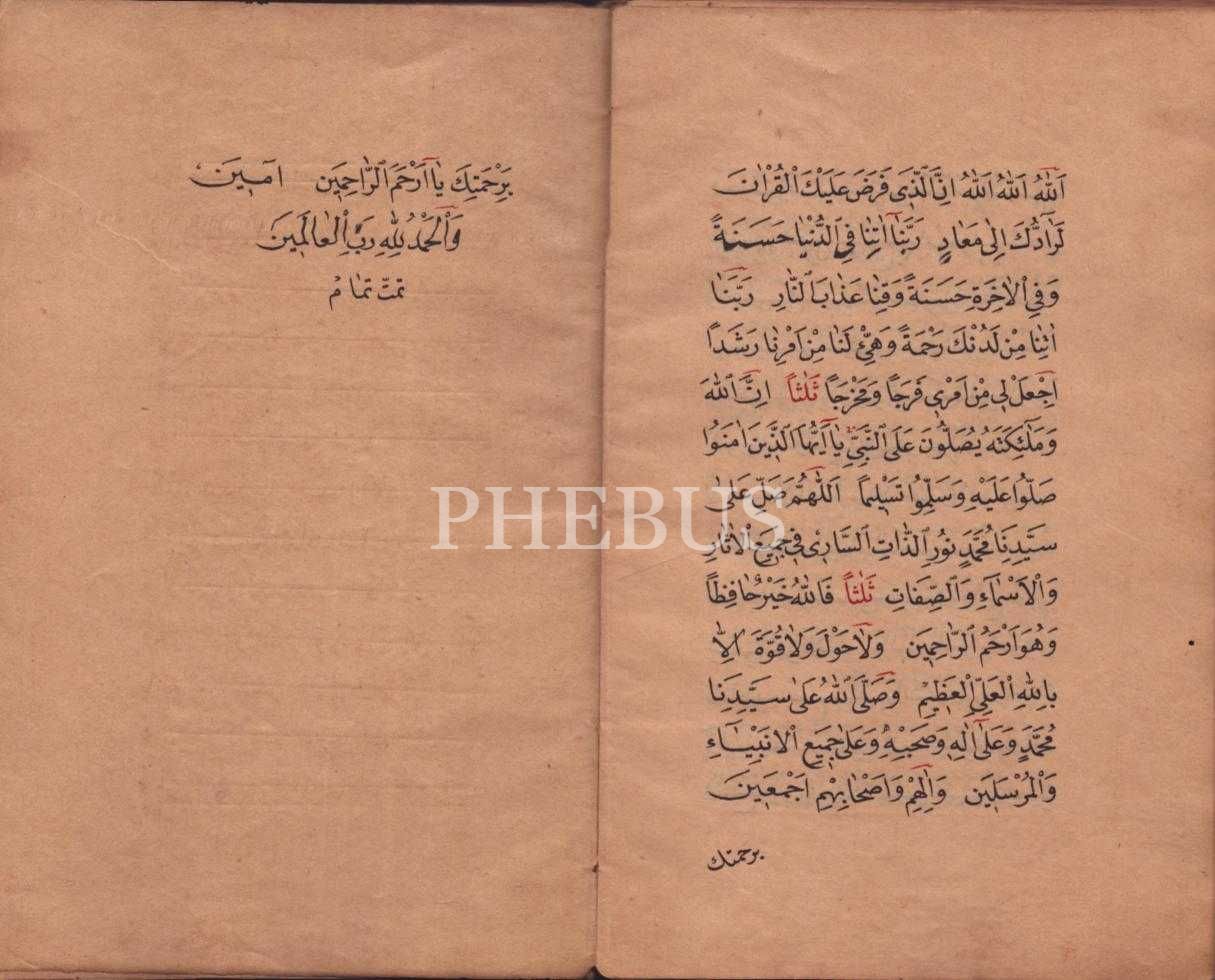 اَللّٰهُ اَللّٰهُ اَللّٰهُ اِنَّ الَّذٖى فَرَضَ عَلَيْكَ الْقُرْاٰنَ
لَرَآدُّكَ اِلٰى مَعَادٍ رَبَّنَآ اٰتِنَا فِى الدُّنْيَا حَسَنَةً
وَفِى الْاٰخِرَةِ حَسَنَةً وَقِنَا عَذَابَ النَّارِ رَبَّنَا
اٰتِنَا مِنْ لَدُنْكَ رَحْمَةً وَهَيِّئْ لَنَا مِنْ اَمْرِنَا رَشَدًا
اِجْعَلْ لٖى مِنْ اَمْرٖى فَرَجًا وَمَخْرَجًا ثَلٰثًا اِنَّ اللّٰهَ
وَمَلٰٓئِكَتَهُ يُصَلُّونَ عَلَى النَّبِىِّ يَآ اَيُّهَا الَّذٖينَ اٰمَنُوا
صَلُّوا عَلَيْهِ وَسَلِّمُوا تَسْلٖيمًا اَللّٰهُمَّ صَلِّ عَلٰى
سَيِّدِنَا مُحَمَّدٍ نُورِ الذَّاتِ السَّارٖى فٖى جَمٖيعِ الْاٰثَارِ
وَالْاَسْمَآءِ وَالصِّفَاتِ ثَلٰثًا فَاللّٰهُ خَيْرٌ حَافِظًا
وَهُوَ اَرْحَمُ الرَّاحِمٖينَ وَلَا حَوْلَ وَلَا قُوَّةَ اِلَّا
بِاللّٰهِ الْعَلِىِّ الْعَظٖيمِ وَصَلَّى اللّٰهُ عَلٰى سَيِّدِنَا
مُحَمَّدٍ وَعَلٰٓى اٰلِهٖ وَصَحْبِهٖ وَعَلٰى جَمٖيعِ الْاَنْبِيَآءِ
وَالْمُرْسَلٖينَ وَاٰلِهِمْ وَاَصْحَابِهِمْ اَجْمَعٖينَ
برحمتك
بِرَحْمَتِكَ يَآ اَرْحَمَ الرَّاحِمٖينَ اٰمٖينَ
وَالْحَمْدُ لِلّٰهِ رَبِّ الْعَالَمٖينَ
تمّت تمام
PHEBUS